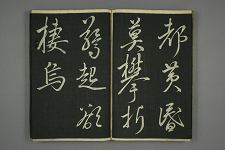 都黄昏
莫攀折
驚起欲
棲烏